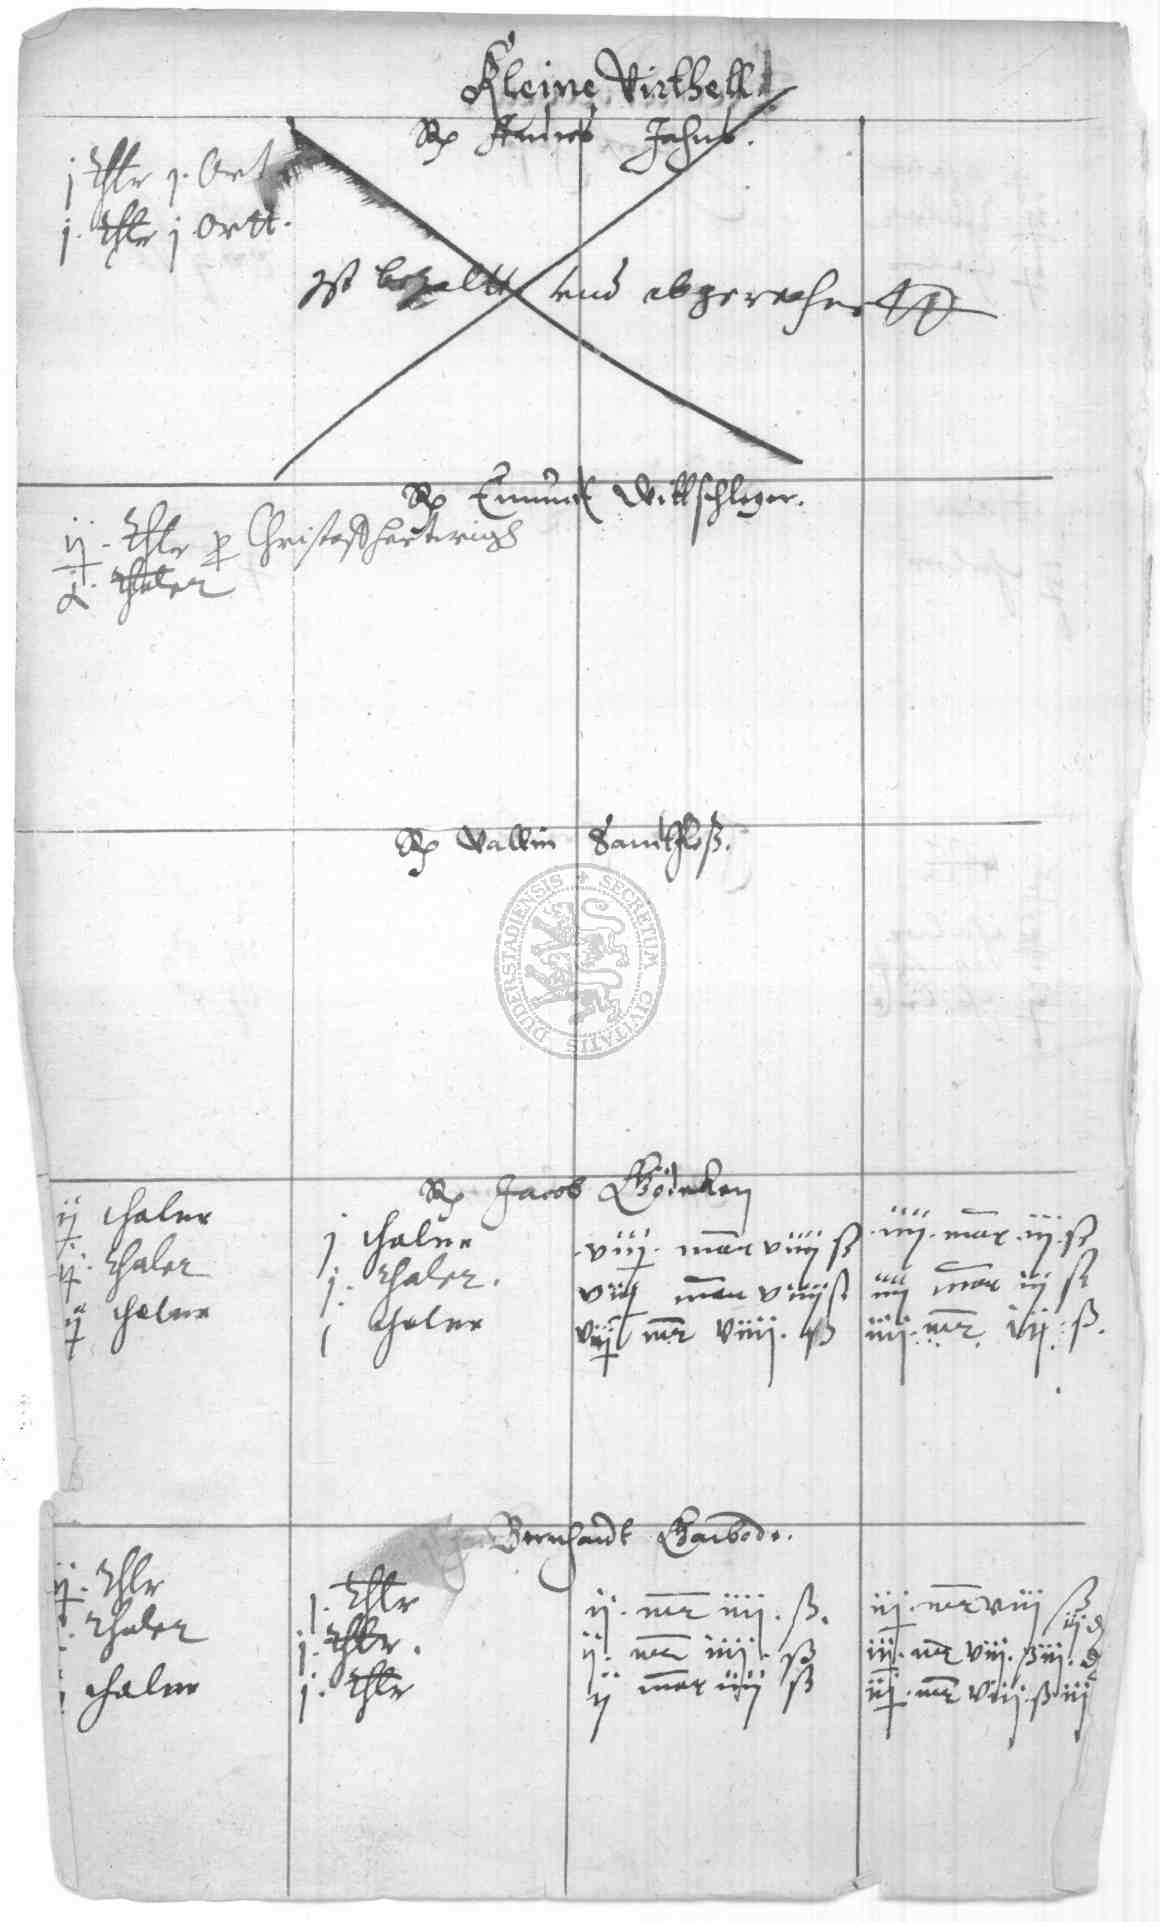 Kleine Virthell.
Rp Anners Jahns.
j thlr j. Ort
j. thlr j Ortt.
Ist bezaltt vnd abgerechn
Rp Wittschleger.
ij - thlr p
j. thaler
Rp Valtin
SECRETUM CIVITATIS DUDERSTADIENSIS
Rp Jacob Gödeken
ij thaler j thaler viij. mar viiij ß iiij. mar. iij. ß
thaler j. thaler. viij mar viiij ß iiij mar iij ß
ij thaler j thaler viij mr viiij. ß iiij. mr iij. ß.
Bernhardt Garbode.
ij. thlr j. thlr ij. mr iiij. ß. iij. mr viij ß iij d
thaler j. thlr. ij. mr iiij. ß iij. mr viij. ß iij. d
thaler j. thlr ij mar iiij ß iij. mr viij. ß iij